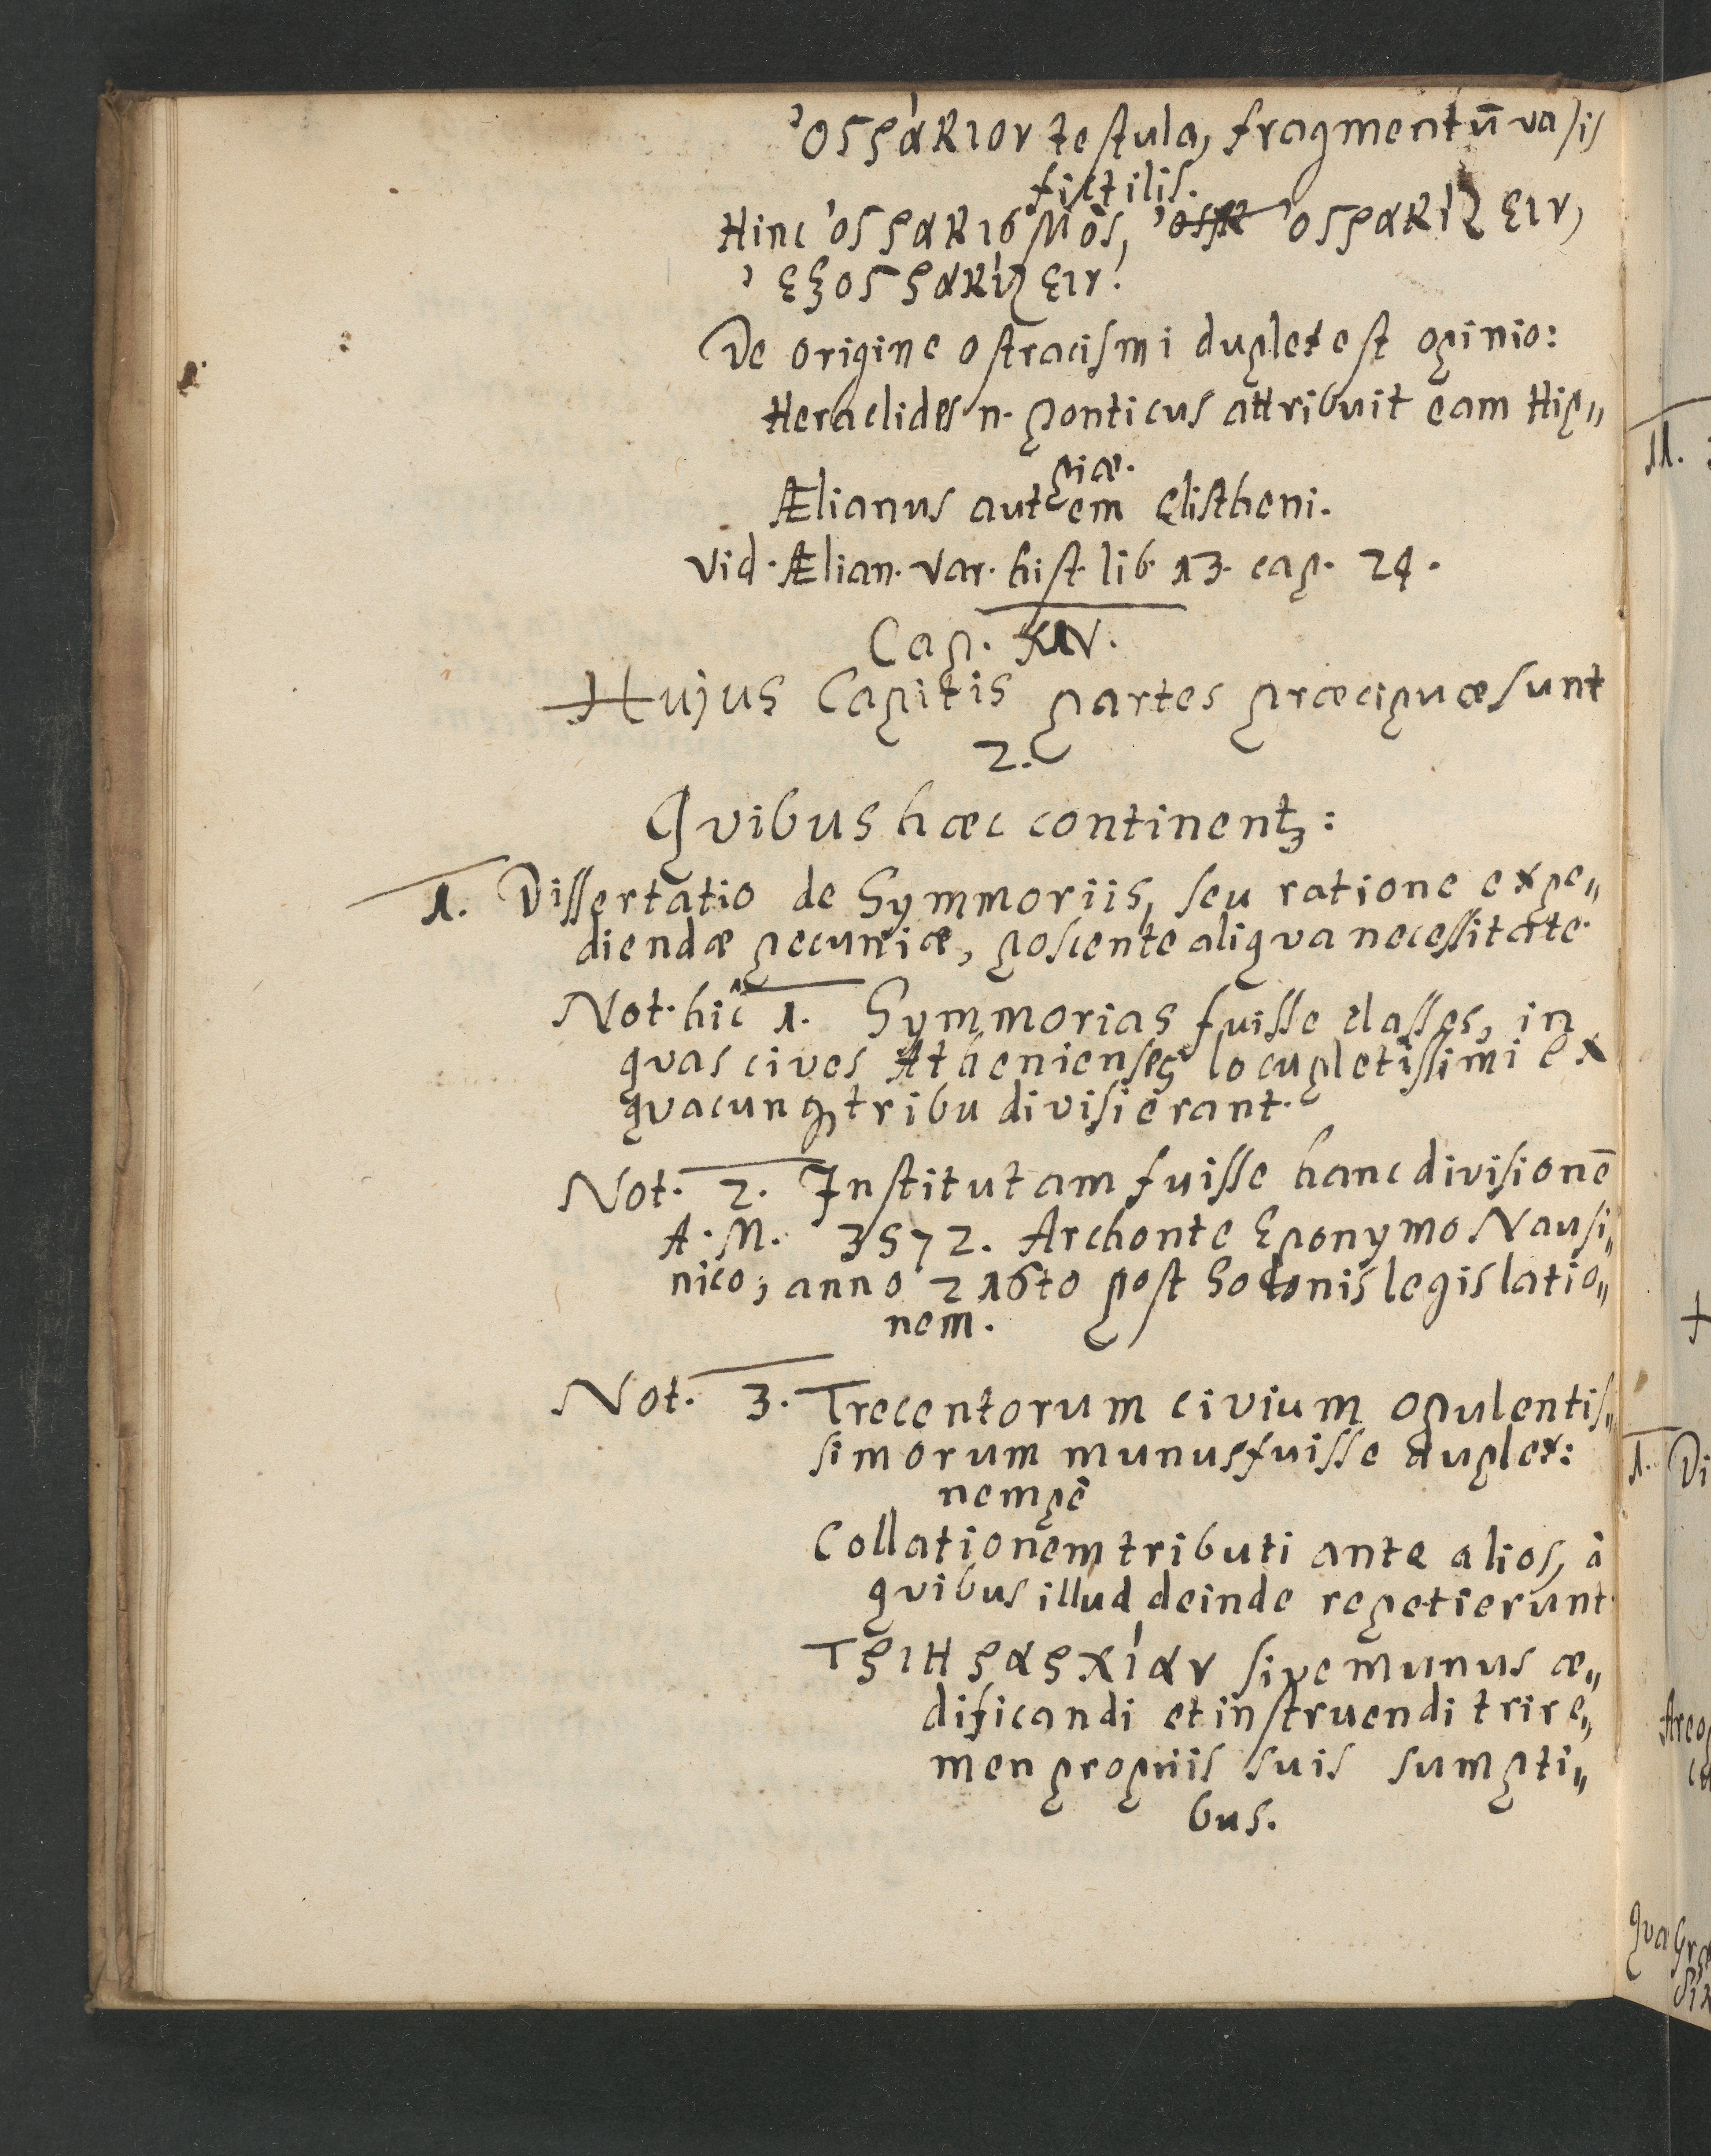 ὀϛράκιον testula, fragmentū vasis
fictilis.
Hinc ὀϛρακισμὸς, ὀϛρακίζειν,
ἐξοϛρακίζειν.
De origine ostracismi duplex est opinio:
Heraclides n. Ponticus attribuit eam Hip„
piæ.
Ælianus autem Clistheni.
Vid. Ælian. Var. hist. lib. 13. cap. 24.
Cap. XIV.
Hujus Capitis partes præcipuæ sunt
2.
Qvibus hæc continentꝫ:
1. Dissertatio de Symmoriis, seu ratione expe„
diendæ pecuniæ, poscente aliqva necessitate.
Not. hîc 1. Symmorias fuisse classes, in
qvas cives Athenienses locupletissimi ex
qvacunqꝫ tribu divisi erant.
Not. 2. Institutam fuisse hanc divisionē
A. M. 3572. Archonte Eponymo Nausi„
nico, anno 216to post Solonis legislatio„
nem.
Not. 3. Trecentorum civium opulentis„
simorum munus fuisse duplex:
nempè
Collationem tributi ante alios, à
qvibus illud deinde repetierunt.
Τριηραρχίαν sive munus æ„
dificandi et instruendi trire„
men propriis suis sumpti„
bus.